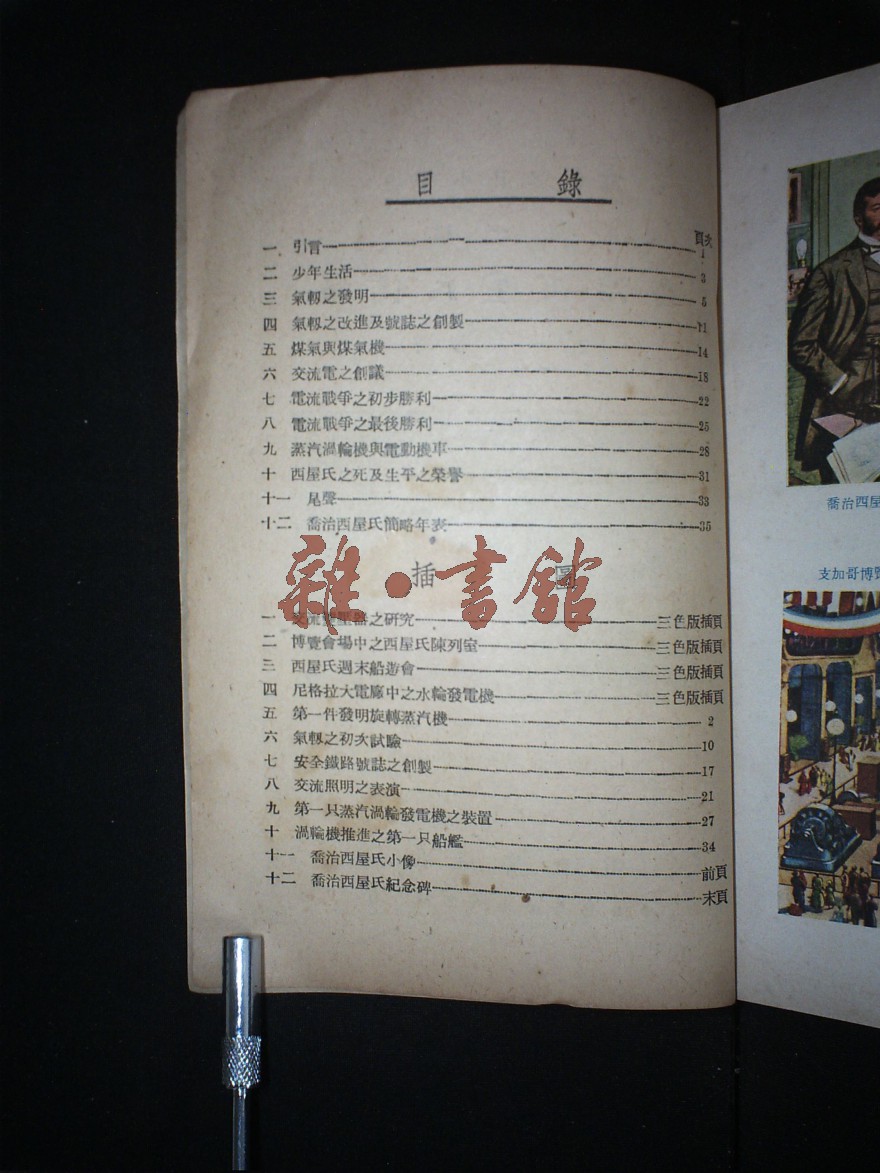 目 錄
頁次
一 引言 1
二 少年生活 3
三 氣軔之發明 5
四 氣軔之改進及號誌之創製 11
五 煤氣與煤氣機 14
六 交流電之創議 18
七 電流戰爭之初步勝利 22
八 電流戰爭之最後勝利 25
九 蒸汽渦輪機與電動機車 28
十 西屋氏之死及生平之榮譽 31
十一 尾聲 33
十二 喬治西屋氏簡略年表 35
插 圖
雜·書館
一 交流變壓器之研究 三色版插頁
二 博覽會場中之西屋氏陳列室 三色版插頁
三 西屋氏週末船遊會 三色版插頁
四 尼格拉大電廠中之水輪發電機 三色版插頁
五 第一件發明旋轉蒸汽機 2
六 氣軔之初次試驗 10
七 安全鐵路號誌之創製 17
八 交流照明之表演 21
九 第一只蒸汽渦輪發電機之裝置 27
十 渦輪機推進之第一只船艦 34
十一 喬治西屋氏小像 前頁
十二 喬治西屋氏紀念碑 末頁
喬治西屋
支加哥博覽